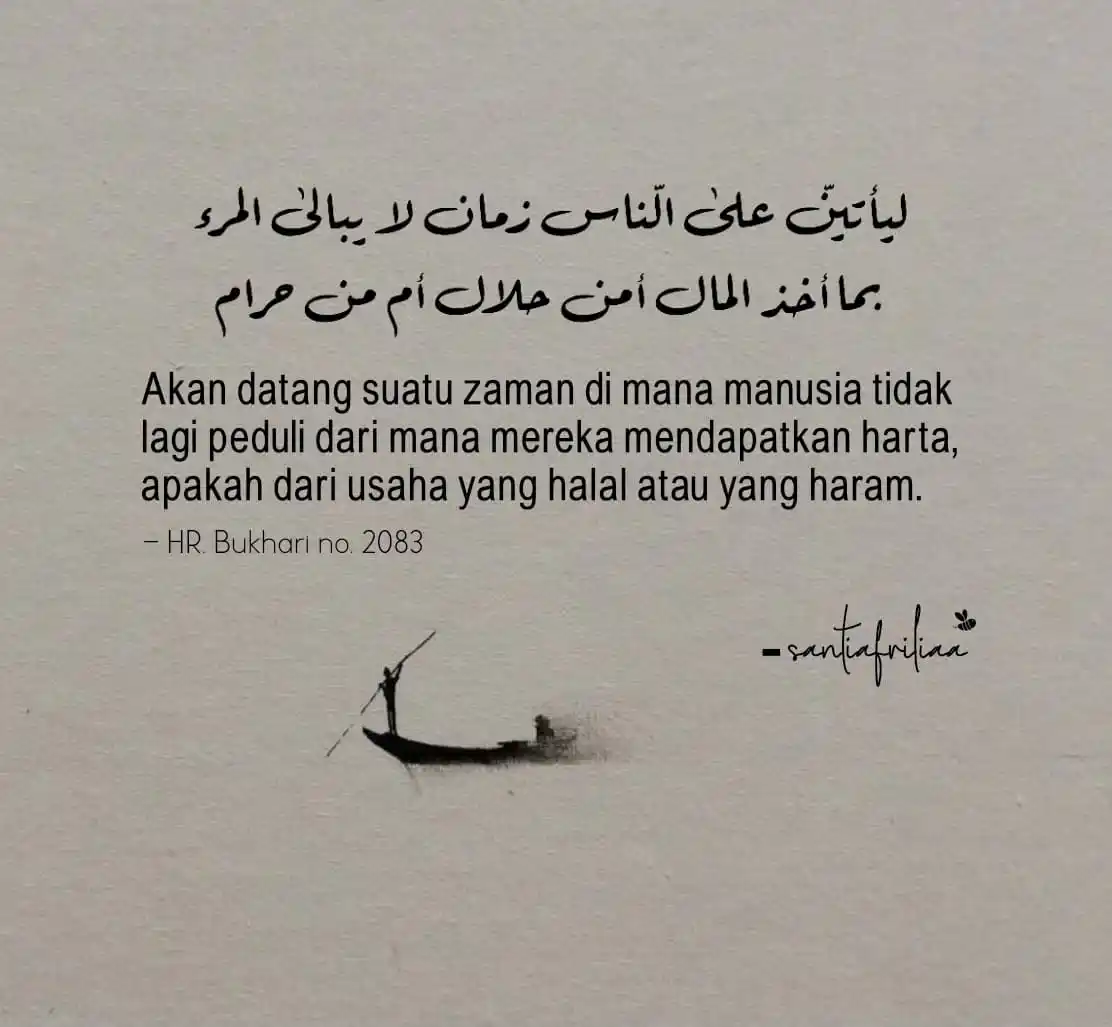 ليأتينّ علىٰ النّاس زمان لا يبالىٰ المرء
بما أخذ المال أمن حلال أم من حرام
Akan datang suatu zaman di mana manusia tidak
lagi peduli dari mana mereka mendapatkan harta,
apakah dari usaha yang halal atau yang haram.
– HR. Bukhari no. 2083
- santiafriliaa